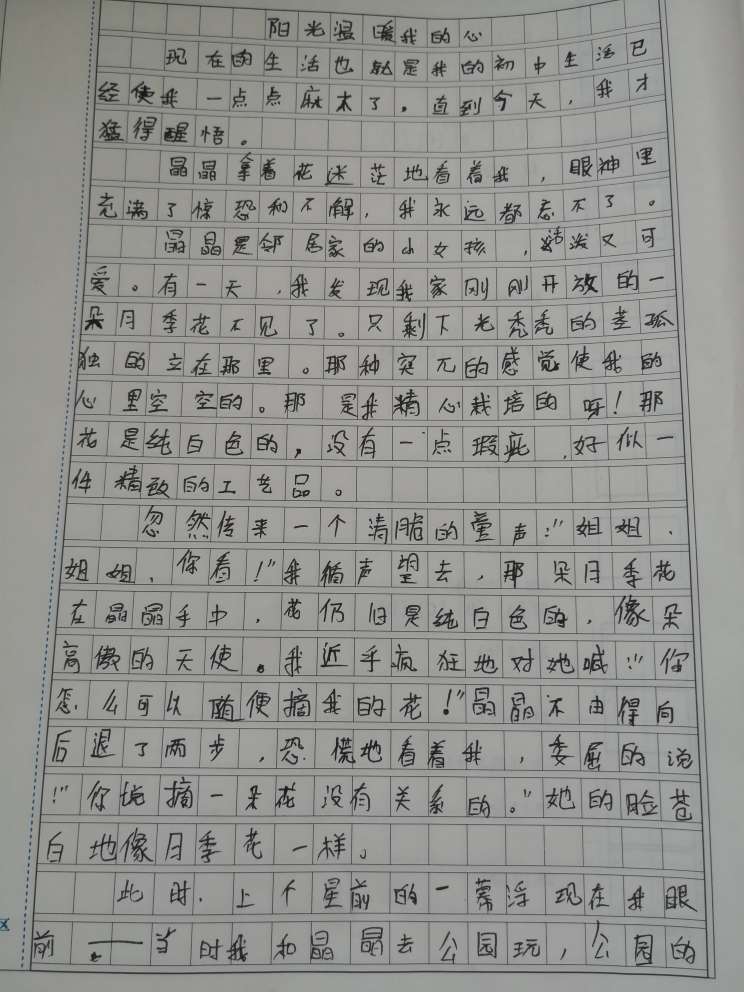 阳光温暖我的心
现在的生活也就是我的初中生活已
经使我一点点麻木了。直到今天，我才
猛得醒悟。
晶晶拿着花迷茫地看着我，眼神里
充满了惊恐和不解，我永远都忘不了。
晶晶是邻居家的小女孩，活泼又可
爱。有一天，我发现我家刚刚开放的一
朵月季花不见了。只剩下光秃秃的茎孤
独的立在那里。那种突兀的感觉使我的
心里空空的。那是我精心栽培的呀！那
花是纯白色的，没有一点瑕疵，好似一
件精致的工艺品。
忽然传来一个清脆的童声：“姐姐、
姐姐、你看！”我循声望去，那朵月季花
在晶晶手中，花仍旧是纯白色的，像朵
高傲的天使。我近乎疯狂地对她喊：“你
怎么可以随便摘我的花！”晶晶不由得向
后退了两步，恐慌地看着我，委屈的说
：“你说摘一朵花没有关系的。”她的脸苍
白地像月季花一样。
此时，上个星期的一幕浮现在我眼
前——当时我和晶晶去公园玩，公园的
区